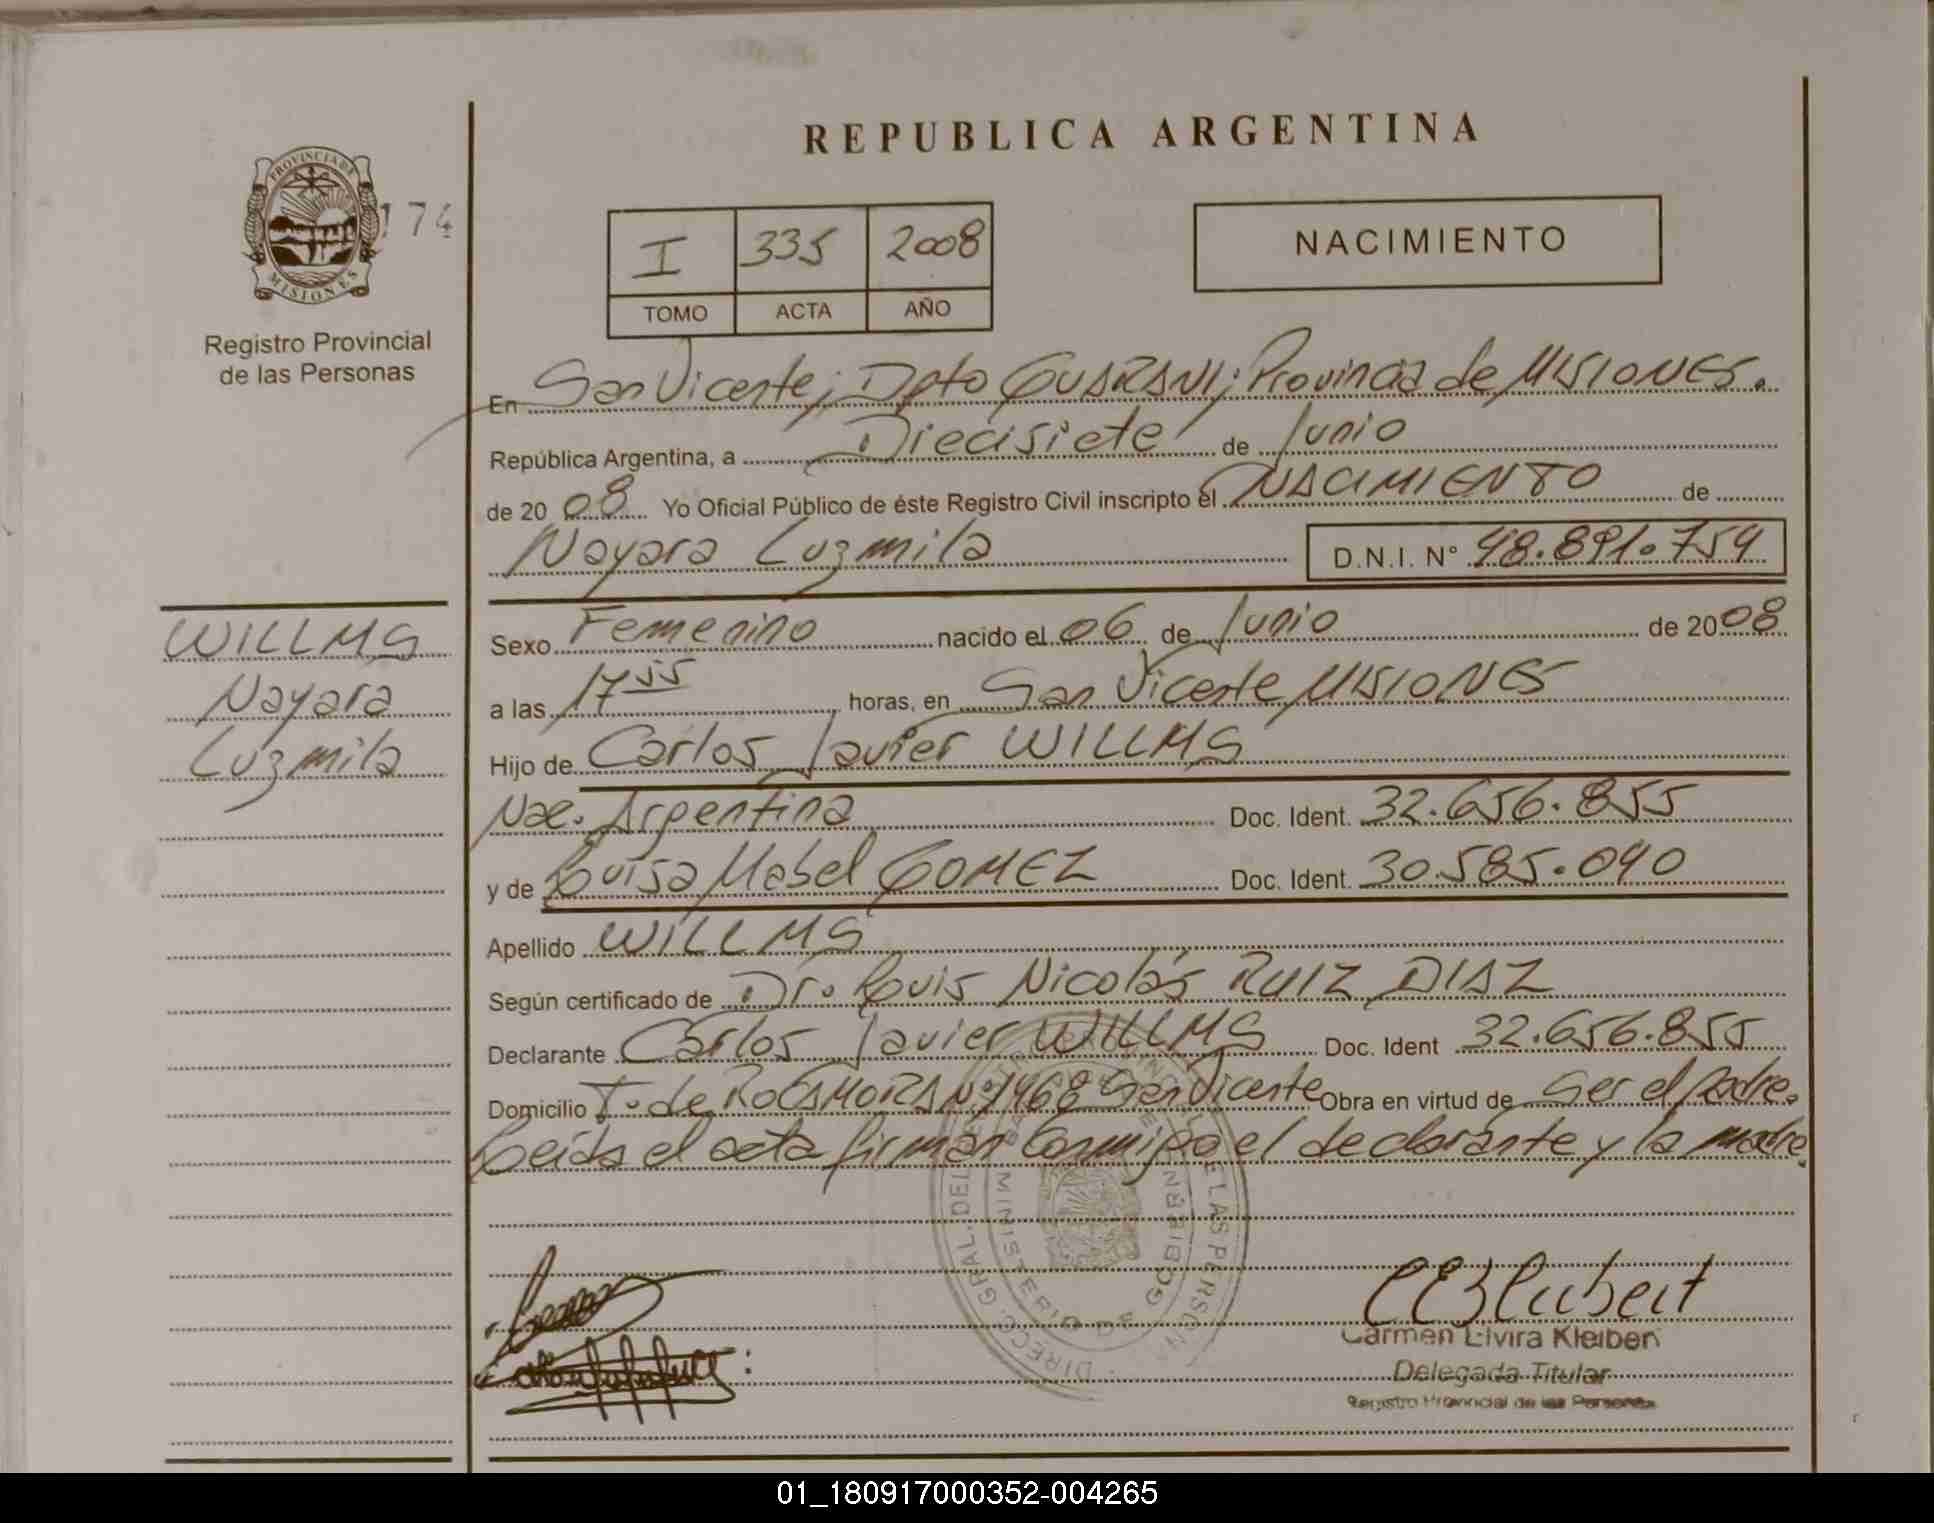 REPUBLICA ARGENTINA
PROVINCIA DE
MISIONES
174
Registro Provincial
de las Personas
I 335 2008
TOMO ACTA AÑO
NACIMIENTO
En San Vicente; Dpto GUARANI; Provincia de MISIONES.
República Argentina, a Diecisiete de Junio
de 2008 Yo Oficial Público de éste Registro Civil inscripto el NACIMIENTO de
Nayara Luzmila D.N.I. N° 48.891.754
WILLMS
Nayara
Luzmila
Sexo Femenino nacido el 06 de Junio de 2008
a las 17 55 horas, en San Vicente MISIONES
Hijo de Carlos Javier WILLMS
Nac. Argentina Doc. Ident. 32.656.855
y de Luisa Mabel GOMEZ Doc. Ident. 30.585.040
Apellido WILLMS
Según certificado de Dr. Luis Nicolás RUIZ DIAZ
Declarante Carlos Javier WILLMS Doc. Ident 32.656.855
Domicilio T. de ROCAMORA Nº 1468 San Vicente Obra en virtud de Ser el padre.
Leída el acta firman conmigo el declarante y la madre.
MINISTERIO DE GOBIERNO
Carmen Elvira Kleibert
Delegada Titular
Registro Provincial de las Personas
01_180917000352-004265